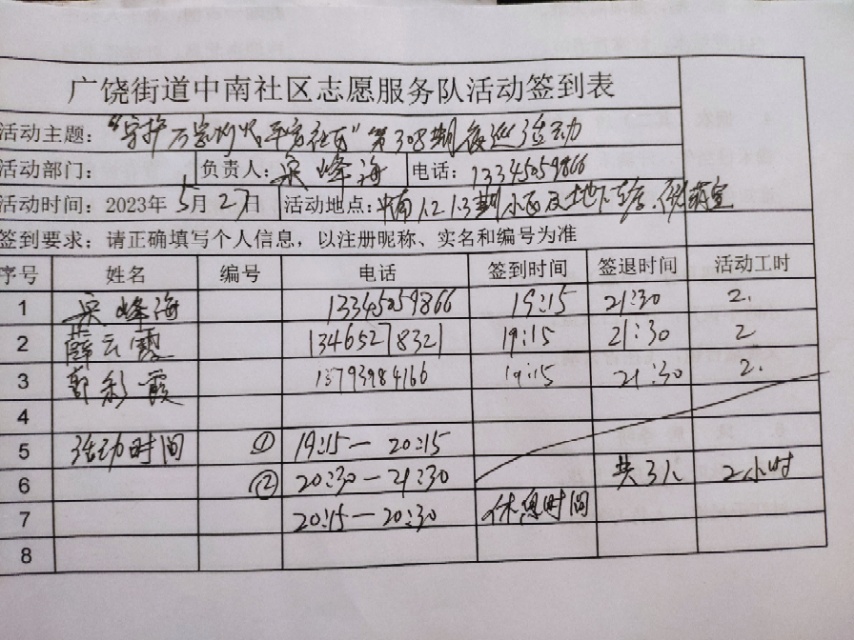 广饶街道中南社区志愿服务队活动签到表
活动主题：“守护万家灯火平安社区”第308期夜巡活动
活动部门： 负责人：吴峰海 电话：13345059866
活动时间：2023年5月27日 活动地点：中南1.2.1.3期小区及地下车库
签到要求：请正确填写个人信息，以注册昵称、实名和编号为准
序号 姓名 编号 电话 签到时间 签退时间 活动工时
1 吴峰海 13345059866 19:15 21:30 2.
2 薛云霞 13465278321 19:15 21:30 2
3 郭彩霞 13793984166 19:15 21:30 2.
4
5 活动时间 ① 19:15—20:15
6 ② 20:30—21:30 共3人 2小时
7 20:15—20:30 休息时间
8